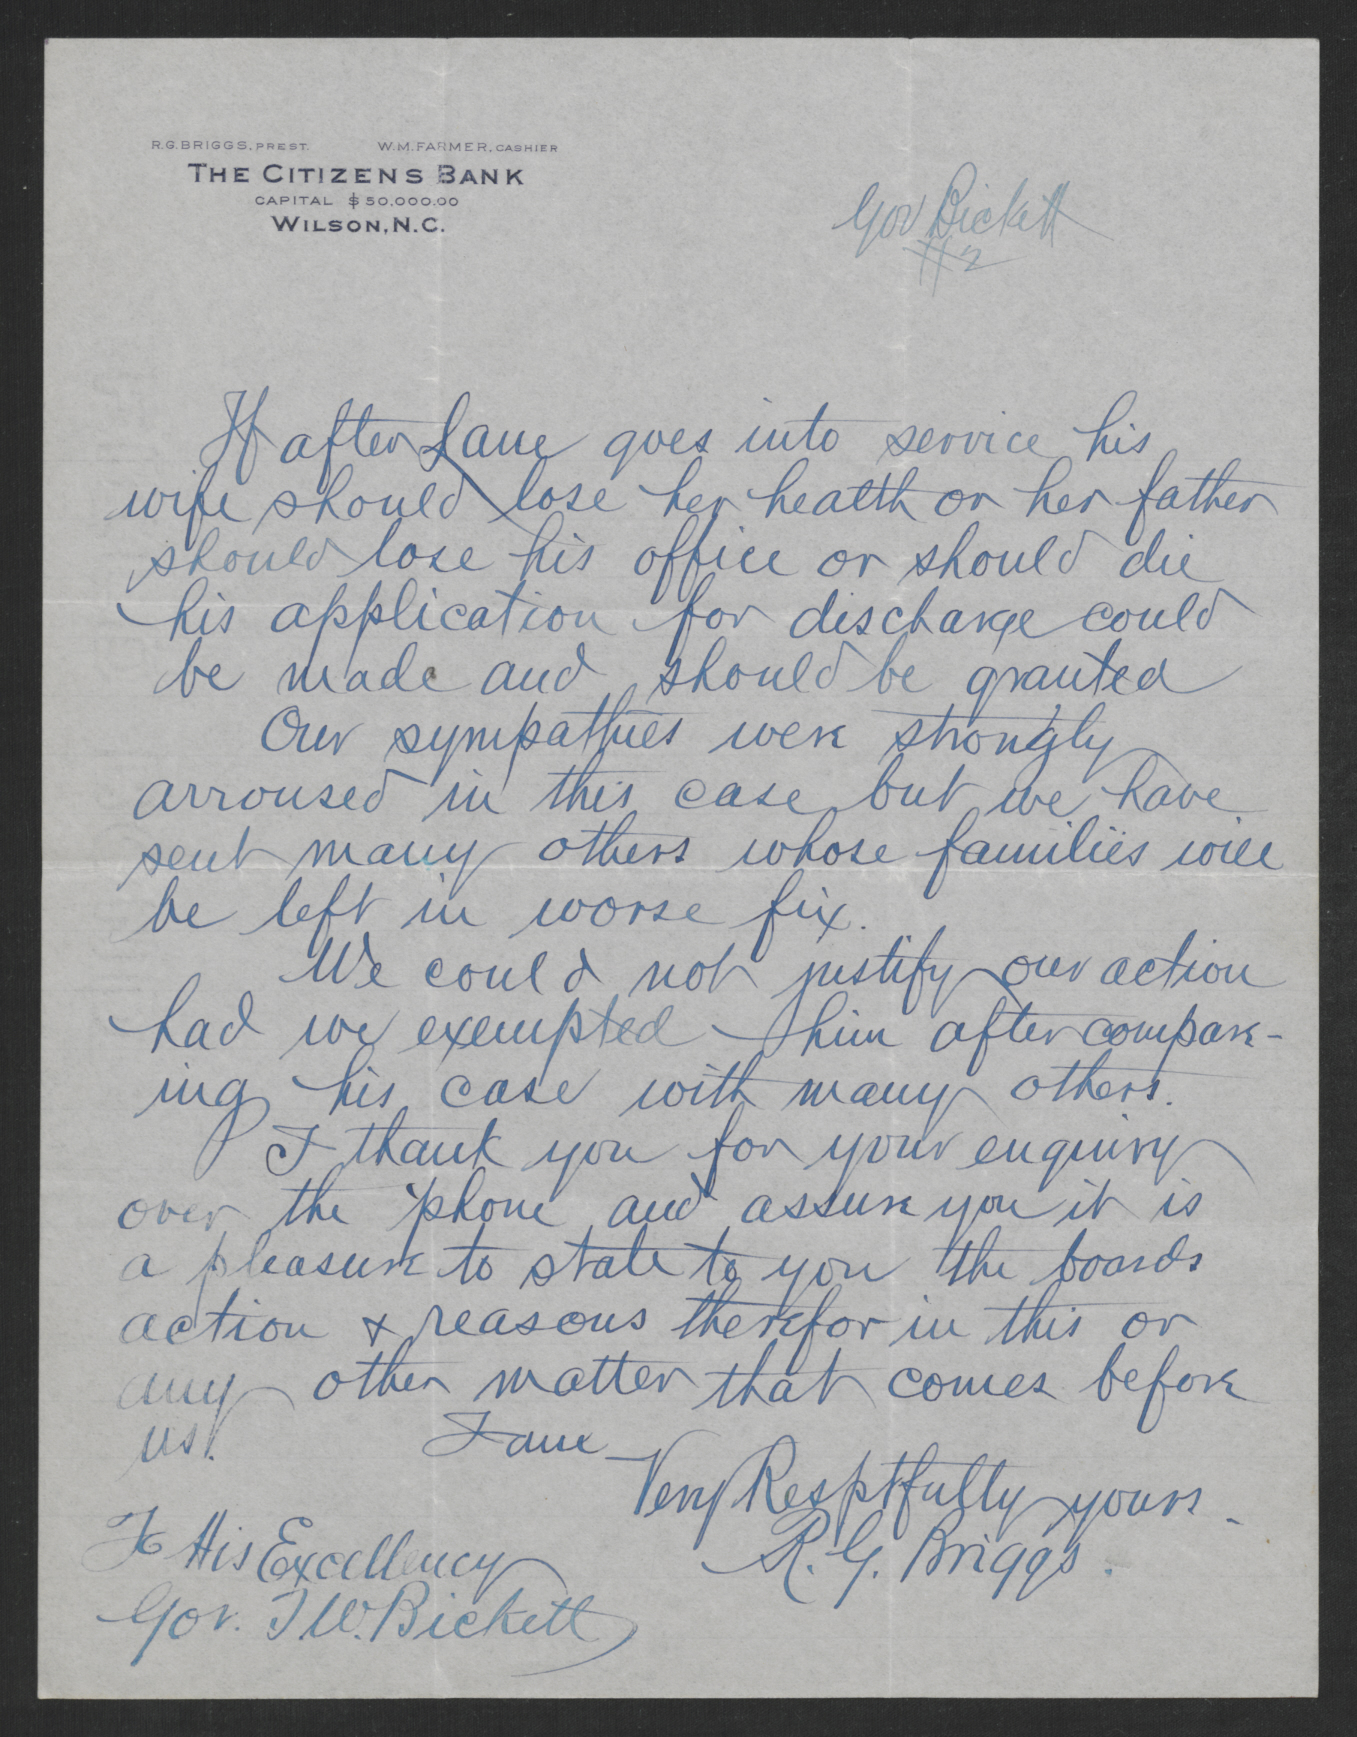 R.G. BRIGGS, PREST. W.M. FARMER, CASHIER
THE CITIZENS BANK
CAPITAL $50,000.00
WILSON, N.C.
Gov Bickett
#2
If after Lane goes into service his
wife should lose her health or her father
should lose his office or should die
his application for discharge could
be made and should be granted
Our sympathies were strongly
arroused in this case but we have
sent many others whose families will
be left in worse fix.
We could not justify our action
had we exempted him after compar-
ing his case with many others.
I thank you for your enquiry
over the 'phone and assure you it is
a pleasure to state to you the boards
action & reasons therefor in this or
any other matter that comes before
us. I am
Very Resptfully yours.
R. G. Briggs.
To His Excellency
Gov. T W. Bickett